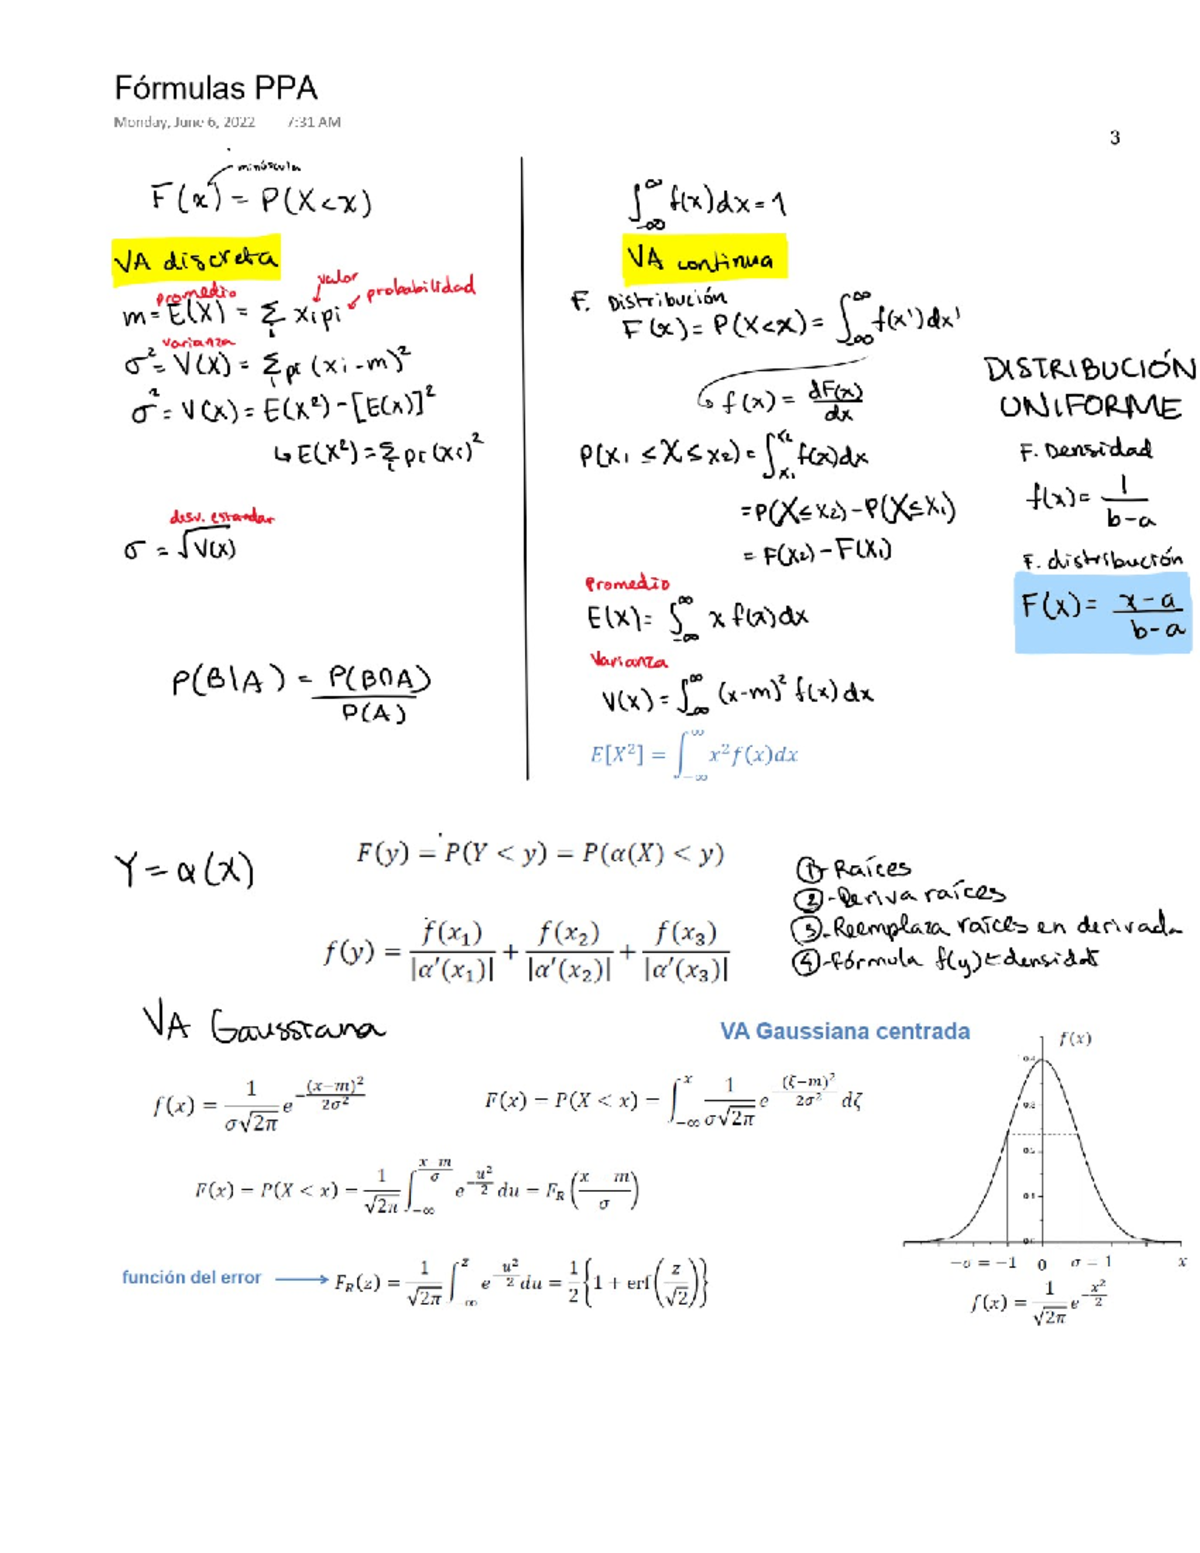 Fórmulas PPA
Monday, June 6, 2022 7:31 AM
3
minúscula
F(x) = P(X<x)
VA discreta
promedio
valor
probabilidad
m = E(X) = Σᵢ xᵢpᵢ
varianza
σ² = V(X) = Σᵢ pᵢ (xᵢ-m)²
σ² = V(X) = E(X²) - [E(X)]²
↳ E(X²) = Σᵢ pᵢ(xᵢ)²
desv. estandar
σ = √V(X)
P(B|A) = P(B∩A) / P(A)
∫_{-∞}^{∞} f(x)dx = 1
VA continua
F. Distribución
F(x) = P(X<x) = ∫_{-∞}^{∞} f(x')dx'
↳ f(x) = dF(x)/dx
P(x₁ ≤ X ≤ x₂) = ∫_{x₁}^{x₂} f(x)dx
= P(X ≤ x₂) - P(X ≤ x₁)
= F(x₂) - F(x₁)
Promedio
E(X) = ∫_{-∞}^{∞} x f(x)dx
Varianza
V(x) = ∫_{-∞}^{∞} (x-m)² f(x)dx
E[X²] = ∫_{-∞}^{∞} x²f(x)dx
DISTRIBUCIÓN
UNIFORME
F. Densidad
f(x) = 1/(b-a)
F. distribución
F(x) = (x-a)/(b-a)
Y = α(X)
F(y) = P(Y < y) = P(α(X) < y)
f(y) = f(x₁)/|α'(x₁)| + f(x₂)/|α'(x₂)| + f(x₃)/|α'(x₃)|
①- Raíces
②-Deriva raíces
③-Reemplaza raíces en derivada
④-Fórmula f(y) ← densidad
VA Gaussiana
f(x) = 1/(σ√2π) e^{-(x-m)²/2σ²}
F(x) = P(X < x) = ∫_{-∞}^{x} 1/(σ√2π) e^{-(ξ-m)²/2σ²} dζ
F(x) = P(X < x) = 1/√2π ∫_{-∞}^{(x-m)/σ} e^{-u²/2} du = F_R((x-m)/σ)
función del error → F_R(z) = 1/√2π ∫_{-∞}^{z} e^{-u²/2} du = 1/2 {1 + erf(z/√2)}
VA Gaussiana centrada
f(x)
-σ = -1 0 σ = 1 x
f(x) = 1/√2π e^{-x²/2}